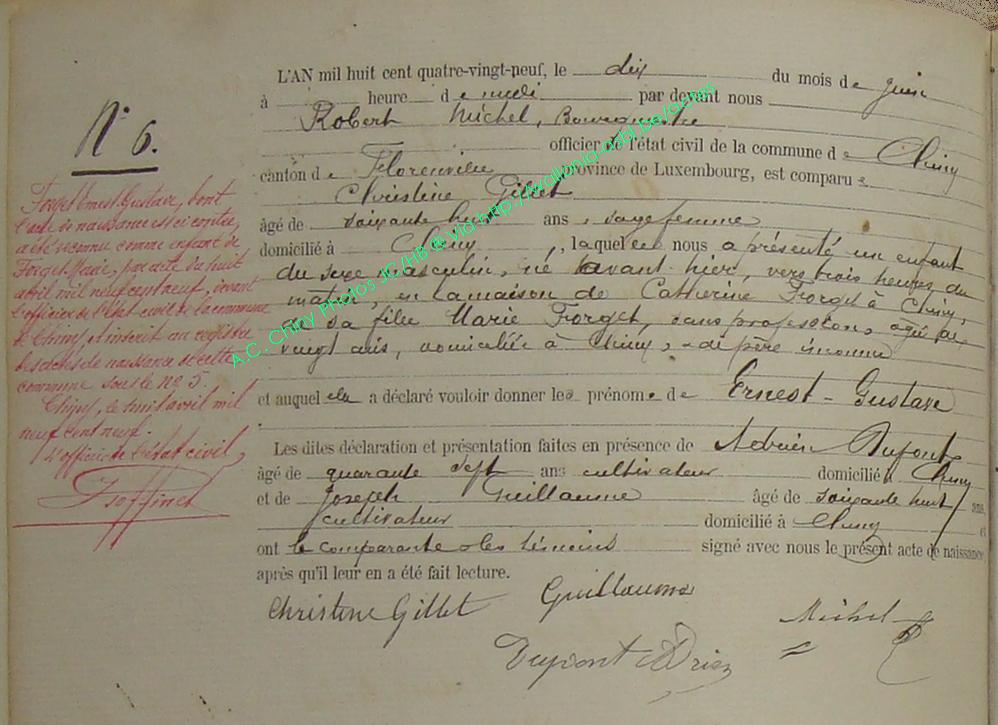 N° 6.
Forget Ernest Gustave, dont
l'acte de naissance est ci contre,
a été reconnu comme enfant de
Forget Marie, par acte du huit
avril mil neuf cent neuf, devant
l'officier de l'Etat civil de la commune
de Chiny et inscrit au registre
des actes de naissance de cette
commune sous le no 5.
Chiny, le huit avril mil
neuf cent neuf.
L'officier de l'état civil,
L'AN mil huit cent quatre-vingt-neuf, le dix du mois de juin
à heure de midi par devant nous
Robert Michel, Bourgmestre
officier de l'état civil de la commune de Chiny
canton de Florenville province de Luxembourg, est comparue
Christine Gillet
âgé de soixante huit ans, sage femme
domicilié à Chiny, laquelle nous a présenté un enfant
du sexe masculin, né avant hier, vers trois heures du
matin, en la maison de Catherine Forget à Chiny,
de sa fille Marie Forget, sans profession, âgée de
vingt ans, domiciliée à Chiny, & de père inconnu
et auquel elle a déclaré vouloir donner les prénoms de Ernest-Gustave
Les dites déclaration et présentation faites en présence de Adrien Dupont
âgé de quarante sept ans cultivateur domicilié à Chiny
et de Joseph Guillaume âgé de soixante huit ans
cultivateur domicilié à Chiny
ont la comparante & les témoins signé avec nous le présent acte de naissance
après qu'il leur en a été fait lecture.
Christine Gillet Guillaume Michel
Dupont Adrien
A.C. Chiny Photos JC/HB © via http://wallonia-asbl.be/actes